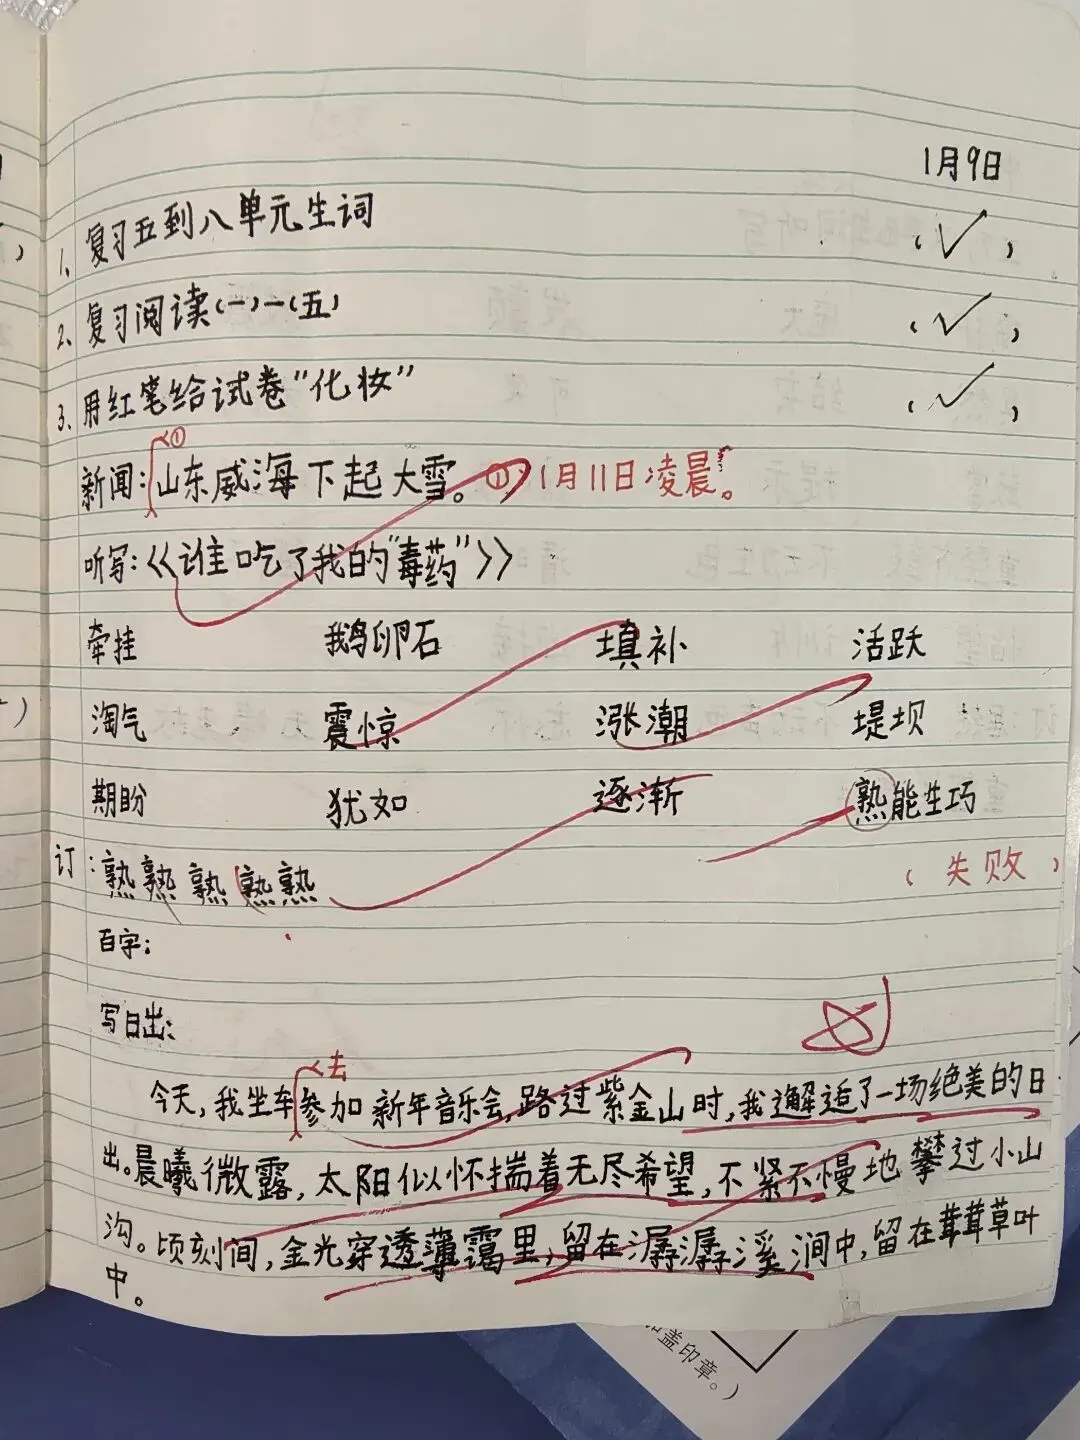 1月9日
1、复习五到八单元生词 (✓)
2、复习阅读(一)—(五) (✓)
3、用红笔给试卷“化妆” (✓)
①
新闻:山东威海下起大雪。①1月11日凌晨。
听写:《谁吃了我的“毒药”》
牵挂 鹅卵石 填补 活跃
淘气 震惊 涨潮 堤坝
期盼 犹如 逐渐 熟能生巧
订:熟熟熟熟熟 (失败)
百字:
写日出:
去
今天,我坐车参加新年音乐会,路过紫金山时,我邂逅了一场绝美的日
出。晨曦微露,太阳似怀揣着无尽希望,不紧不慢地攀过小山
沟。顷刻间,金光穿透薄霭里,留在潺潺溪涧中,留在茸茸草叶
中。
盖印章。)